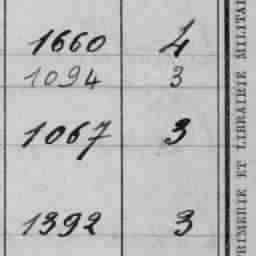 1660 4
1094 3
1067 3
1392 3
PRIMERIE ET LIBRAIRIE MILITAI